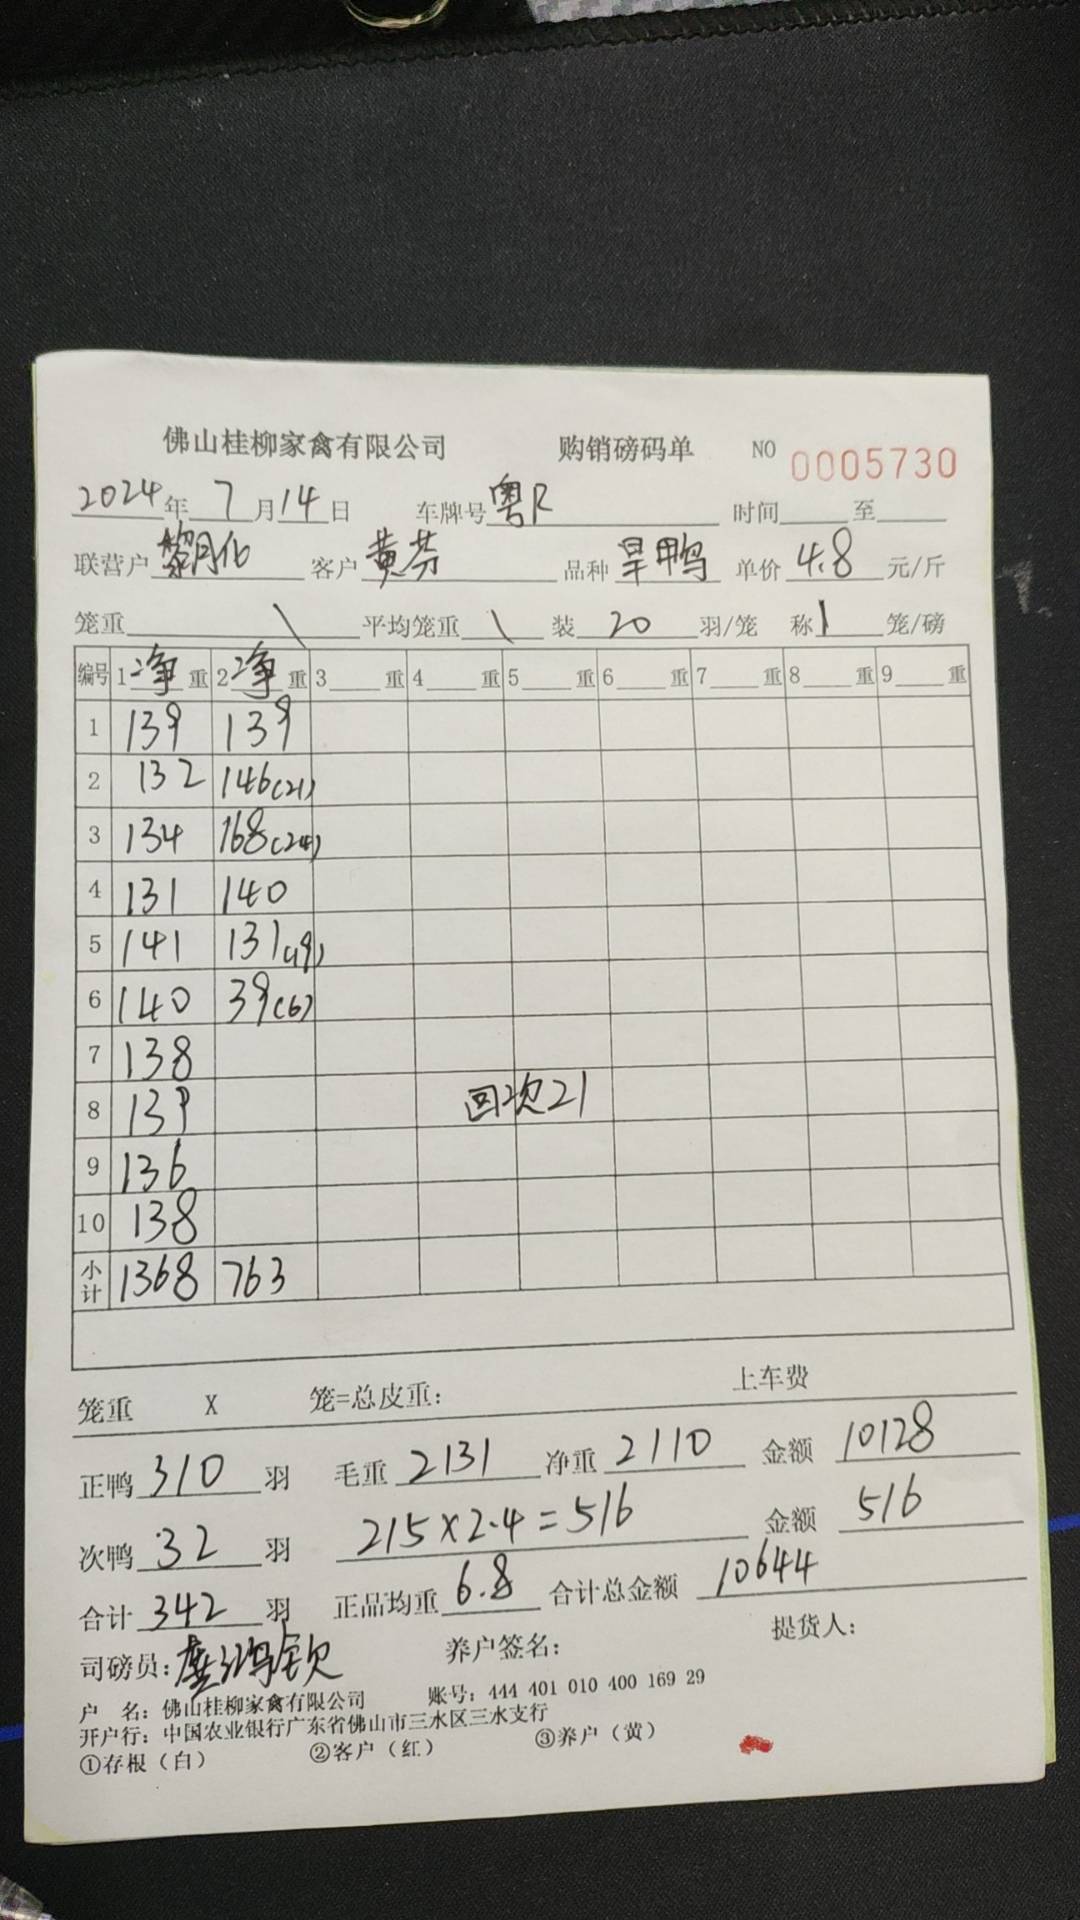 佛山桂柳家禽有限公司 购销磅码单 NO 0005730
2024年7月14日 车牌号粤R 时间 至
联营户黎月化 客户黄芬 品种旱鸭 单价4.8元/斤
笼重\ 平均笼重\ 装20羽/笼 称1笼/磅
编号 1净重 2净重 3重 4重 5重 6重 7重 8重 9重
1 139 139
2 132 146(21)
3 134 168(24)
4 131 140
5 141 131(19)
6 140 39(6)
7 138
8 139 回次21
9 136
10 138
小计 1368 763
笼重 X 笼=总皮重: 上车费
正鸭310羽 毛重2131 净重2110 金额10128
次鸭32羽 215×2.4=516 金额516
合计342羽 正品均重6.8 合计总金额10644
司磅员: 养户签名: 提货人:
户 名: 佛山桂柳家禽有限公司 账号: 444 401 010 400 169 29
开户行: 中国农业银行广东省佛山市三水区三水支行
①存根（白） ②客户（红） ③养户（黄）